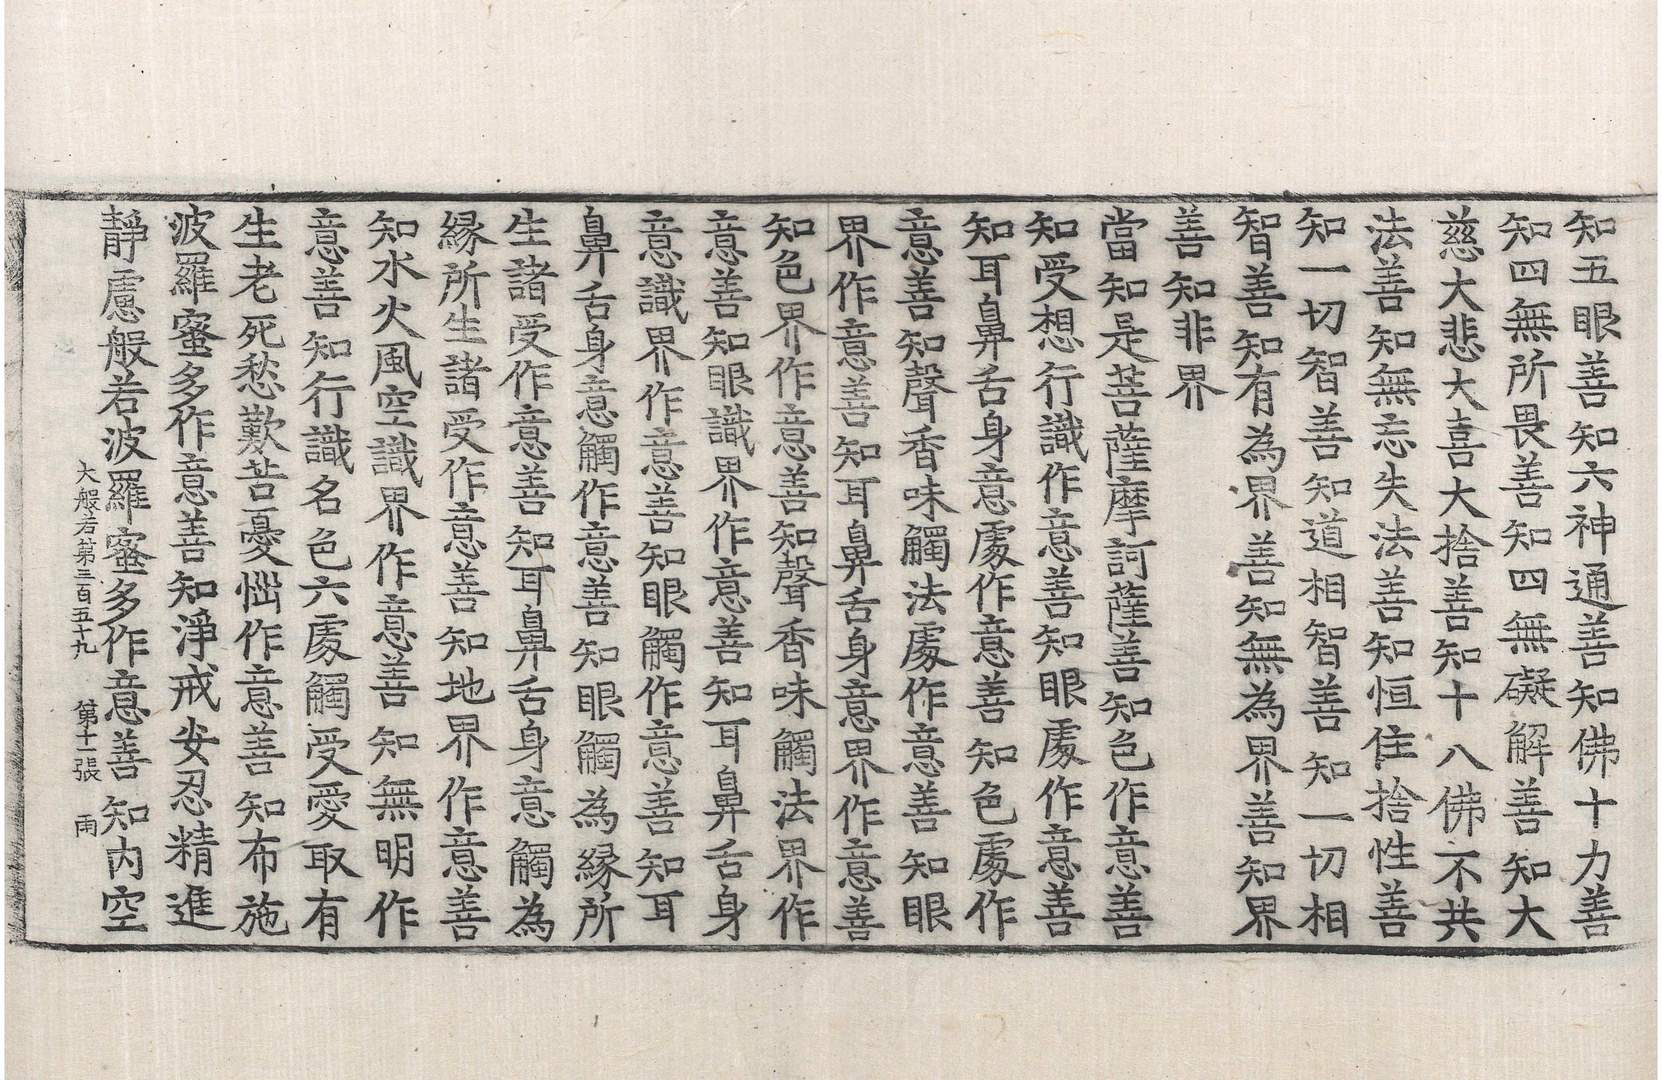 知五眼善知六神通善知佛十力善
知四無所畏善知四無礙解善知大
慈大悲大喜大捨善知十八佛不共
法善知無忘失法善知恒住捨性善
知一切智善知道相智善知一切相
智善知有為界善知無為界善知界
善知非界
當知是菩薩摩訶薩善知色作意善
知受想行識作意善知眼處作意善
知耳鼻舌身意處作意善知色處作
意善知聲香味觸法處作意善知眼
界作意善知耳鼻舌身意界作意善
知色界作意善知聲香味觸法界作
意善知眼識界作意善知耳鼻舌身
意識界作意善知眼觸作意善知耳
鼻舌身意觸作意善知眼觸為緣所
生諸受作意善知耳鼻舌身意觸為
緣所生諸受作意善知地界作意善
知水火風空識界作意善知無明作
意善知行識名色六處觸受愛取有
生老死愁歎苦憂惱作意善知布施
波羅蜜多作意善知淨戒安忍精進
靜慮般若波羅蜜多作意善知內空
大般若第三百五十九 第十一張 雨